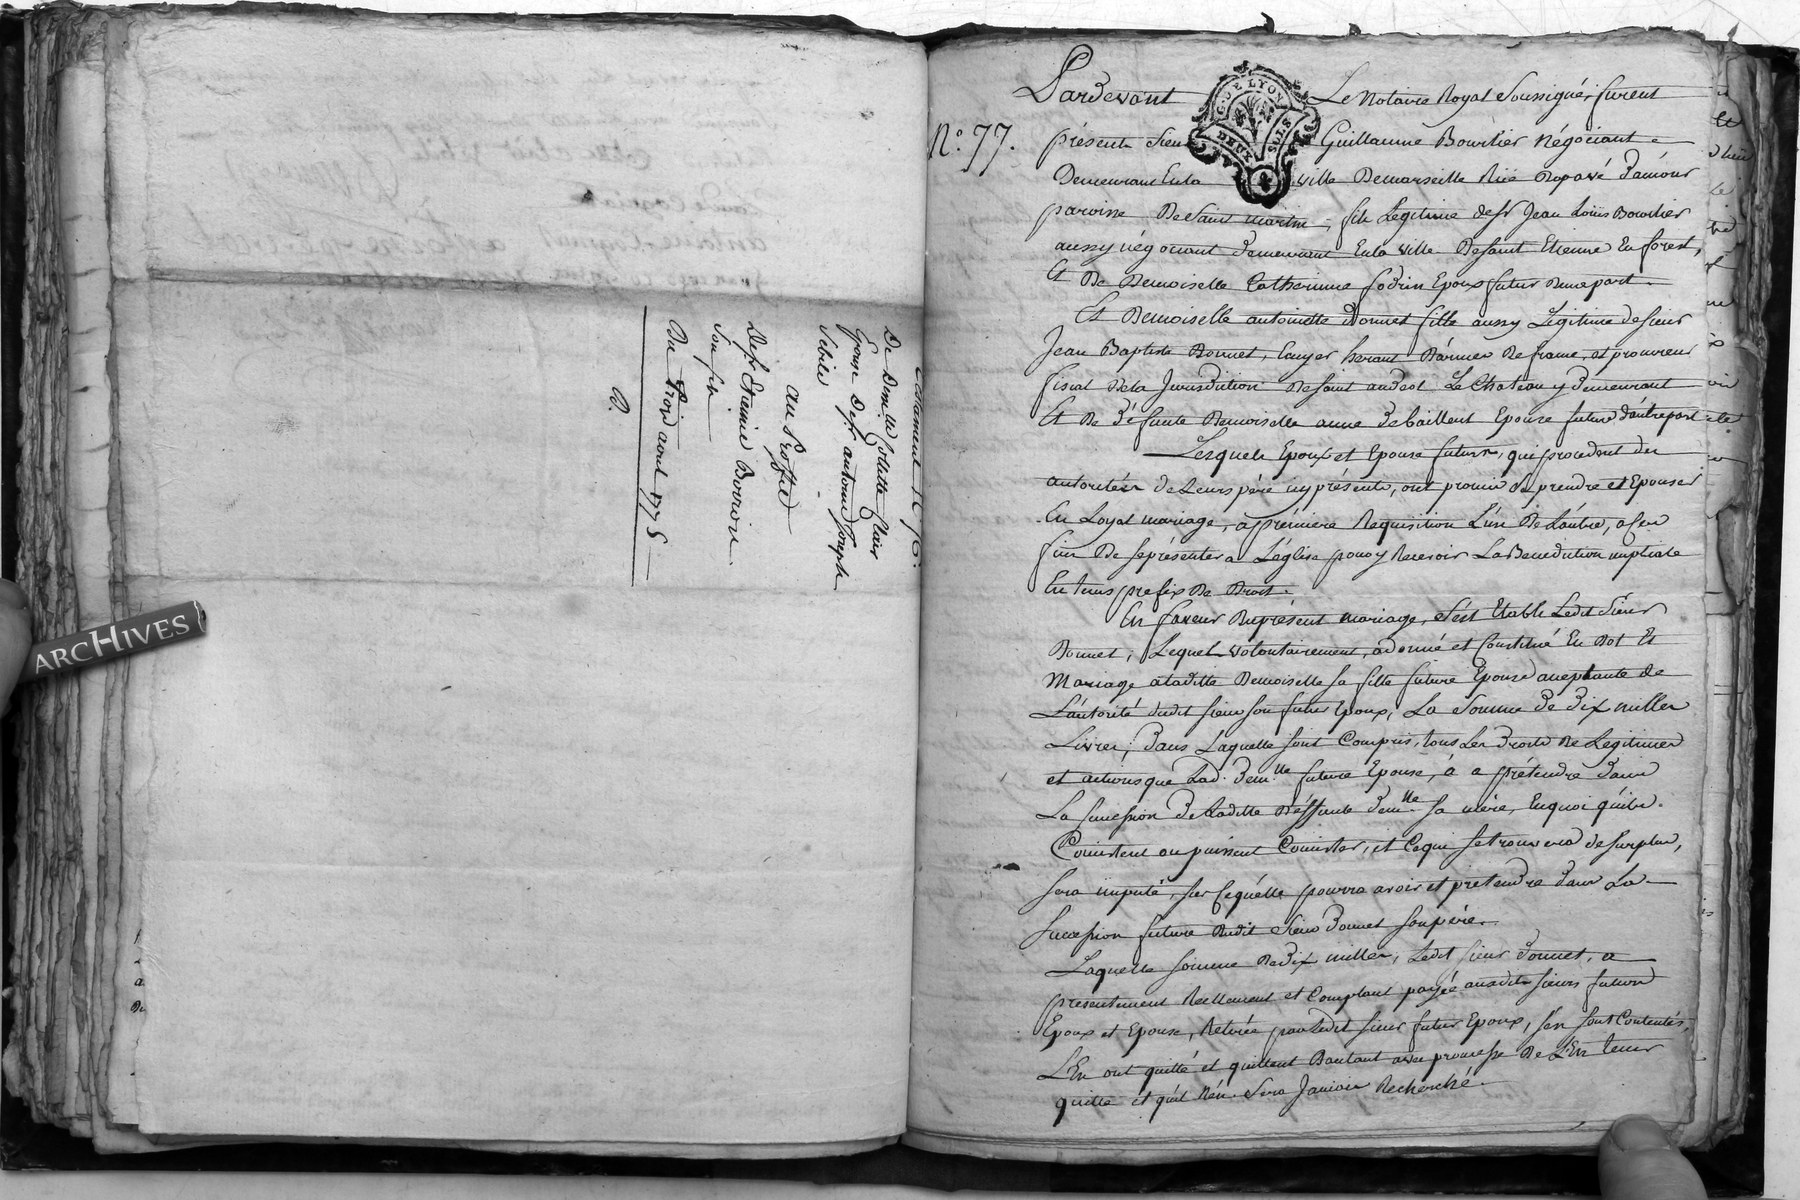 Testament
De Dem.lle Collette Clair
Epouse De sr antoine Joseph
Sebile
au proffit
De sr Etienne
son fils
Du trois avril 1775
ARCHIVES
G. DE LYON
DEUX SOLS
N.o 77.
Pardevant Le Notaire Royal Soussigné, furent
présent sieur Guillaume Bourlier Négociant
Demeurant En la ville De marseille Rüe paradis
paroisse De Saint martin, fils Légitime de sr Jean Loüis Bourlier
aussy négociant demeurant En la ville De saint Etienne En forest,
Et De Demoiselle Catherinne fodrin Epoux futur D'une part.
Et Demoiselle antoinette Donnet fille aussy Légitime de sieur
Jean Baptiste Donnet, Ecuyer heraut D'armes De france, et procureur
fiscal De la Jurisdiction De saint andeol Le Chateau y demeurant
Et De déffunte Demoiselle anne Debaillent Epouse future d'autre part
Lesquels Epoux et Epouse futurs, qui procedent des
autorités de Leurs père icy présents, ont promis se prendre et Epouser
En Loyal mariage, a première Requisition L'un De L'autre, a ses
fins De se présenter a L'église pour y Recevoir La Benediction nuptiale
En tems prefix De Droit.
En faveur Du présent mariage, s'est Etabli Ledit sieur
Donnet, Lequel volontairement, a donné et Constitué En Dot Et
Mariage a laditte Demoiselle sa fille future Epouse acceptante de
L'autorité dudit sieur son futur Epoux, La Somme de dix milles
Livres, dans Laquelle sont Compris, tous Les Droits De Legitimes
et actions que Lad. dem.lle future Epouse, a a prétendre dans
La succession de Laditte Déffunte dem.lle sa mère, En quoi qu'ils
Consistent ou puissent Consister, et Ce qui se trouvera de surplus,
sera imputé, sur Ce qu'elle pourra avoir et pretendre dans La
succession future Dudit Sieur Donnet son père.
Laquelle somme De dix milles, Ledit sieur Donnet, a
présentement Reellement et Comptant payée auxdits sieurs futurs
Epoux et Epouse, Retirée par Ledit sieur futur Epoux, s'en sont Contentés,
L'En ont quitté et quittent D'autant avec promesse De L'En tenir
quitte et qu'il N'en Sera Jamais Recherché.